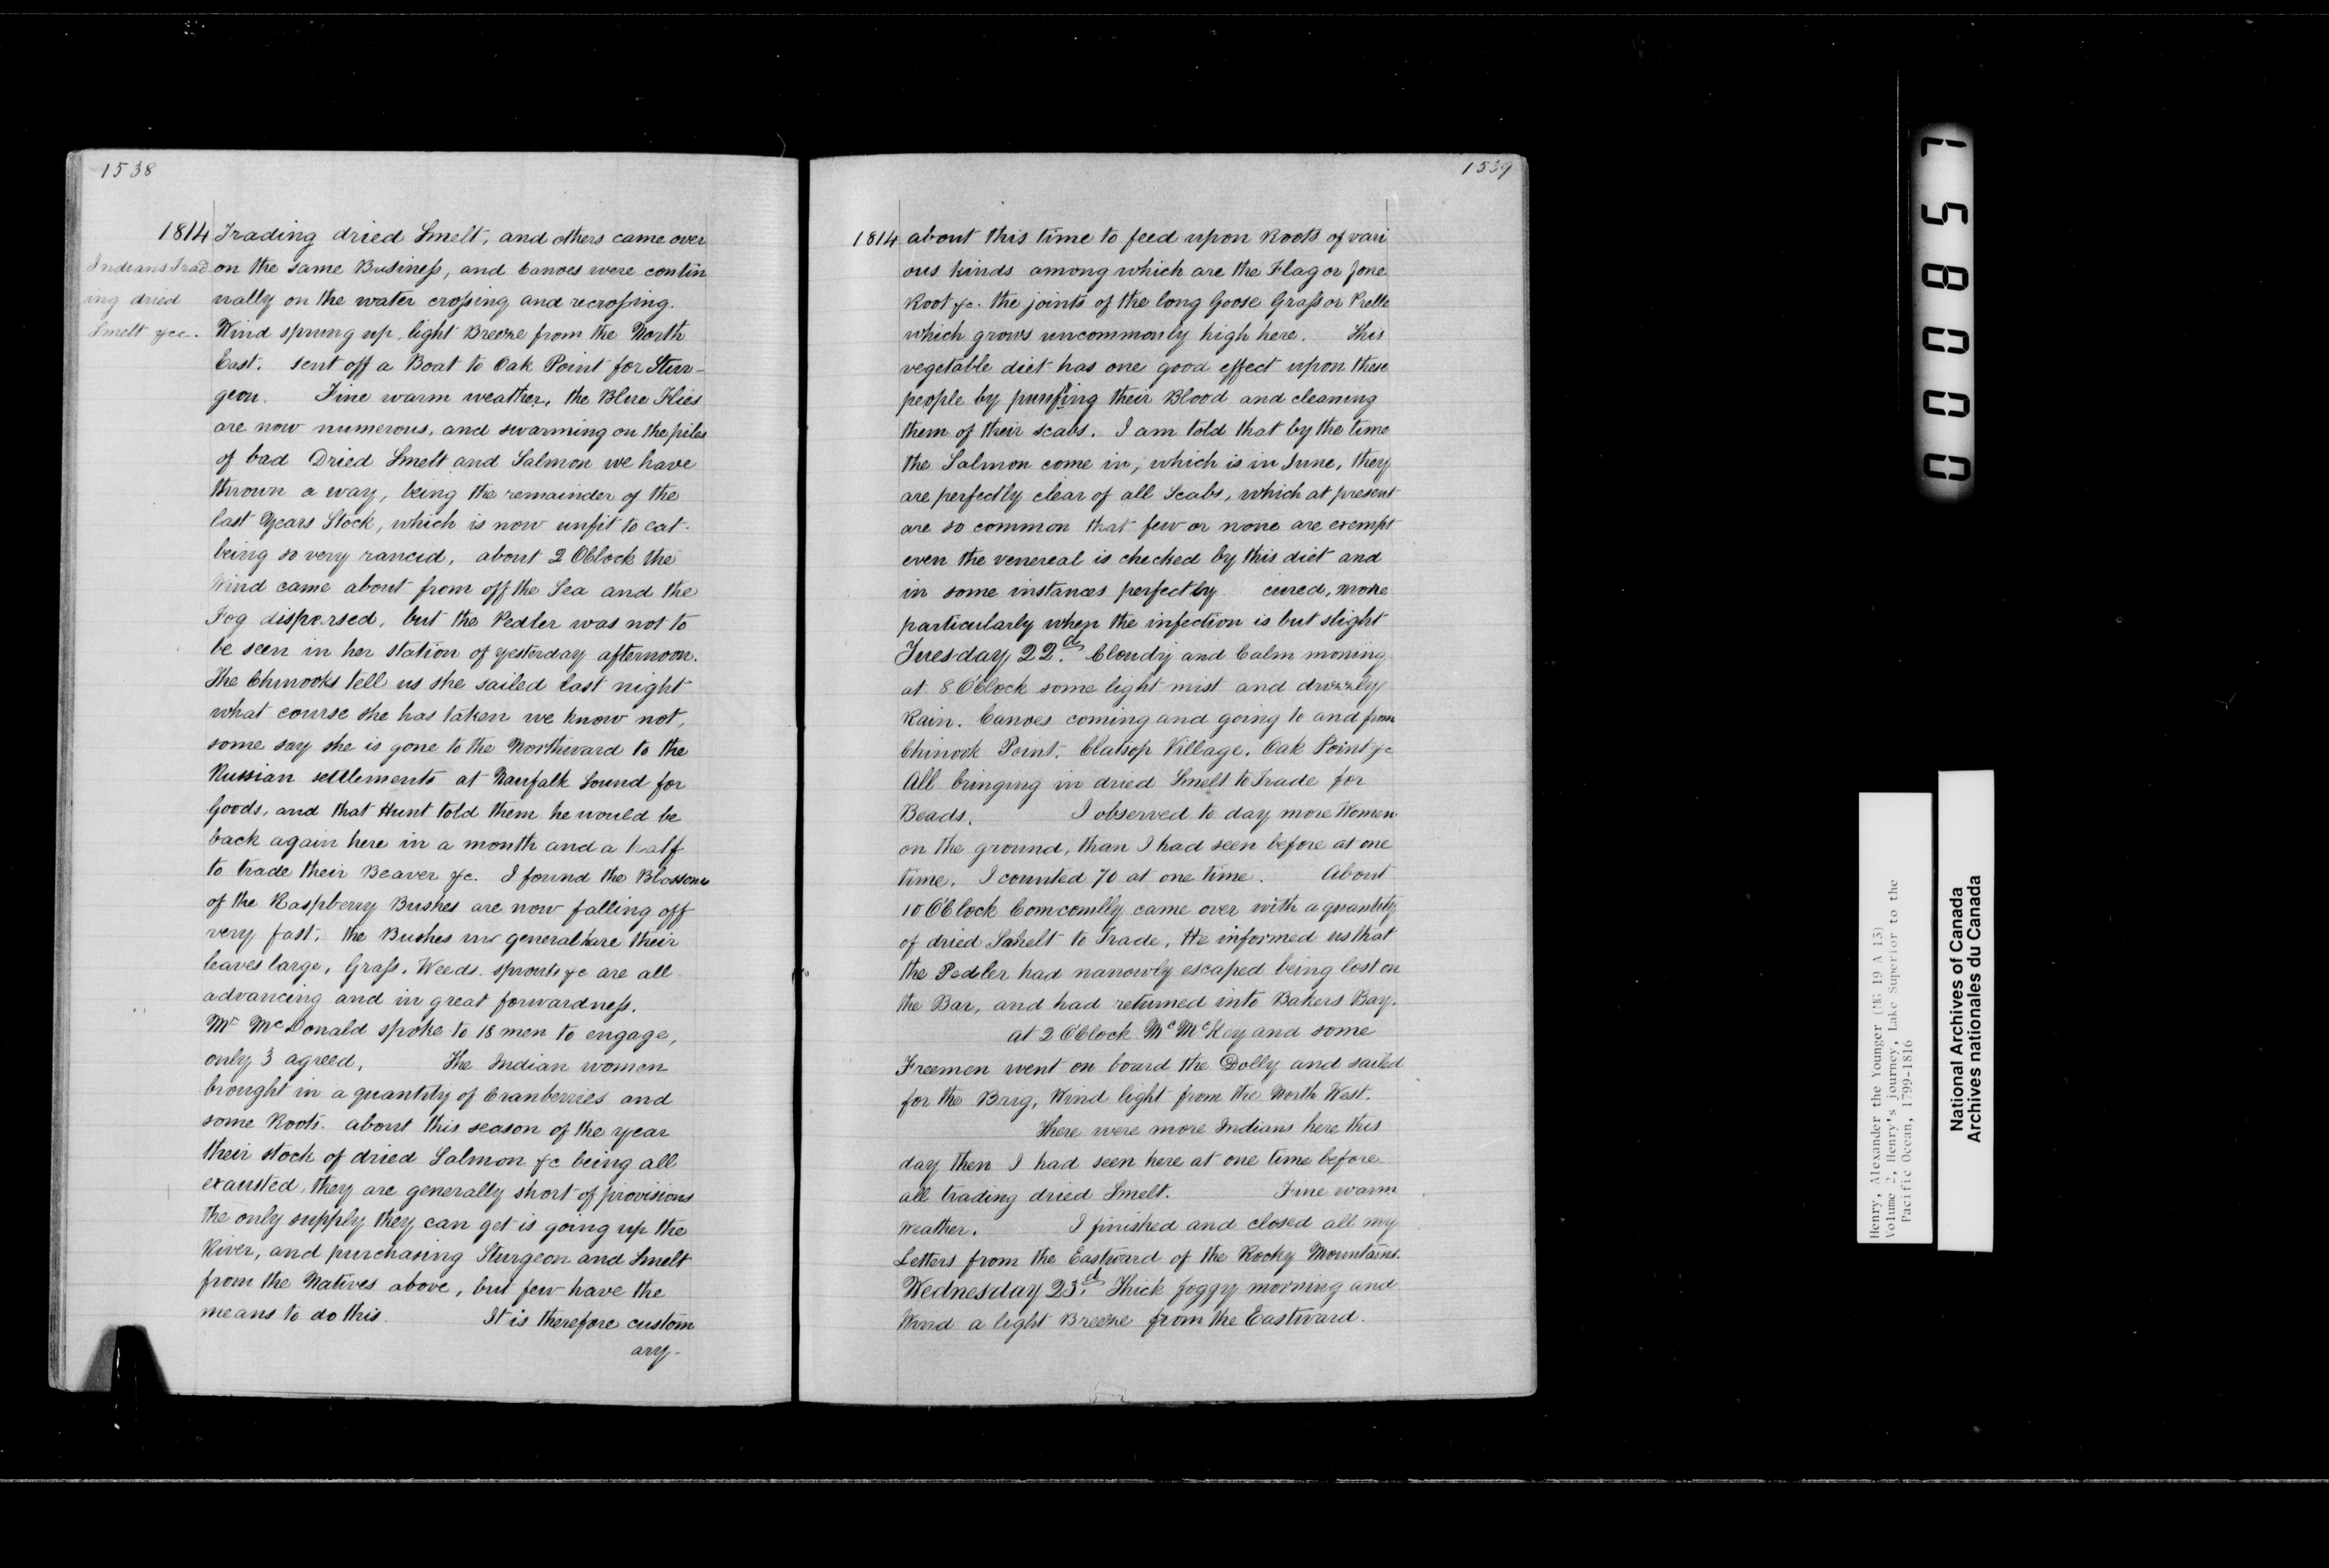 1538
1814 Trading dried Smelt, and others came over
Indians Trad on the same Businefs, and Canoes were contin
ing dried nually on the water crofsing and recrofsing.
Smelt &cc. Wind sprung up, light Breeze from the North
East. sent off a Boat to Oak Point for Stur-
geon. Fine warm weather, the Blue Flies
are now numerous, and swarming on the piles
of bad Dried Smelt and Salmon we have
thrown a way, being the remainder of the
last Years Stock, which is now unfit to eat.
being so very rancid, about 2 OClock the
Wind came about from off the Sea and the
Fog dispersed, but the Pedler was not to
be seen in her station of yesterday afternoon.
The Chinooks tell us she sailed last night
what course she has taken we know not,
some say she is gone to the Northward to the
Russian settlements at Naufalk Sound for
Goods, and that Hunt told them he would be
back again here in a month and a half
to trade their Beaver &c. I found the Blossoms
of the Raspberry Bushes are now falling off
very fast, the Bushes in general have their
leaves large, Grafs, Weeds. sprouts &c are all
advancing and in great forwardnefs.
Mr McDonald spoke to 18 men to engage,
only 3 agreed, The Indian women
brought in a quantity of Cranberries and
some Roots. about this season of the year
their stock of dried Salmon &c being all
exausted, they are generally short of provisions
the only supply they can get is going up the
River, and purchasing Sturgeon and Smelt
from the Natives above, but few have the
means to do this. It is therefore custom
ary-
1539
1814 about this time to feed upon Roots of vari
ous kinds among which are the Flag or Jone
Root &c. the joints of the long Goose Grafs or Prelle
which grows uncommonly high here. This
vegetable diet has one good effect upon these
people by purifing their Blood and cleaning
them of their scabs. I am told that by the time
the Salmon come in, which is in June, they
are perfectly clear of all Scabs, which at present
are so common that few or none are exempt
even the venereal is checked by this diet and
in some instances perfectly cured, more
particularly when the infection is but slight
Tuesday 22.d Cloudy and Calm morning
at 8 O'Clock some light mist and drizzly
Rain. Canoes coming and going to and from
Chinook Point. Clatsop Village. Oak Point &c
All bringing in dried Smelt to Trade for
Beads. I observed to day more Women
on the ground, than I had seen before at one
time. I counted 70 at one time. About
10 O'Clock Comcomlly came over with a quantity
of dried Smelt to Trade, He informed us that
the Pedler had narrowly escaped being lost on
the Bar, and had returned into Bakers Bay.
at 2 O'Clock Mc McKey and some
Freemen went on board the Dolly and sailed
for the Brig, Wind light from the North West.
There were more Indians here this
day then I had seen here at one time before
all trading dried Smelt. Fine warm
weather. I finished and closed all my
Letters from the Eastward of the Rocky Mountains.
Wednesday 23.d Thick foggy morning and
Wind a light Breeze from the Eastward.
000857
Henry, Alexander the Younger (MG 19 A 13)
Volume 2, Henry's journey, Lake Superior to the
Pacific Ocean, 1799-1816
National Archives of Canada
Archives nationales du Canada